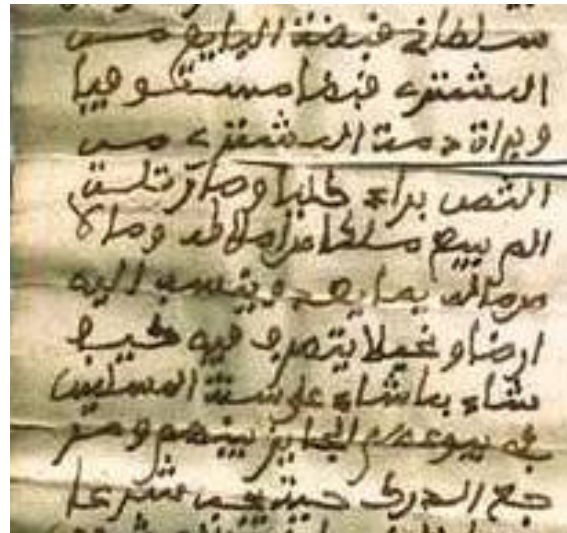 سلطاني قبضه البايع من
المشتري قبضا مستوفيا
وبراة ذمت المشتري من
الثمن براءة كليا وصارت تلك
المبيع ملكا من املاكه ومالا
من ماله بما يعد وينسب اليه
ارضا ونخيلا يتصرف فيه كيف
شاء بما شاء على سنة المسلمين
في بيوعهم الجايز بينهم ومر
جع الدرك حيث يجب شرعا